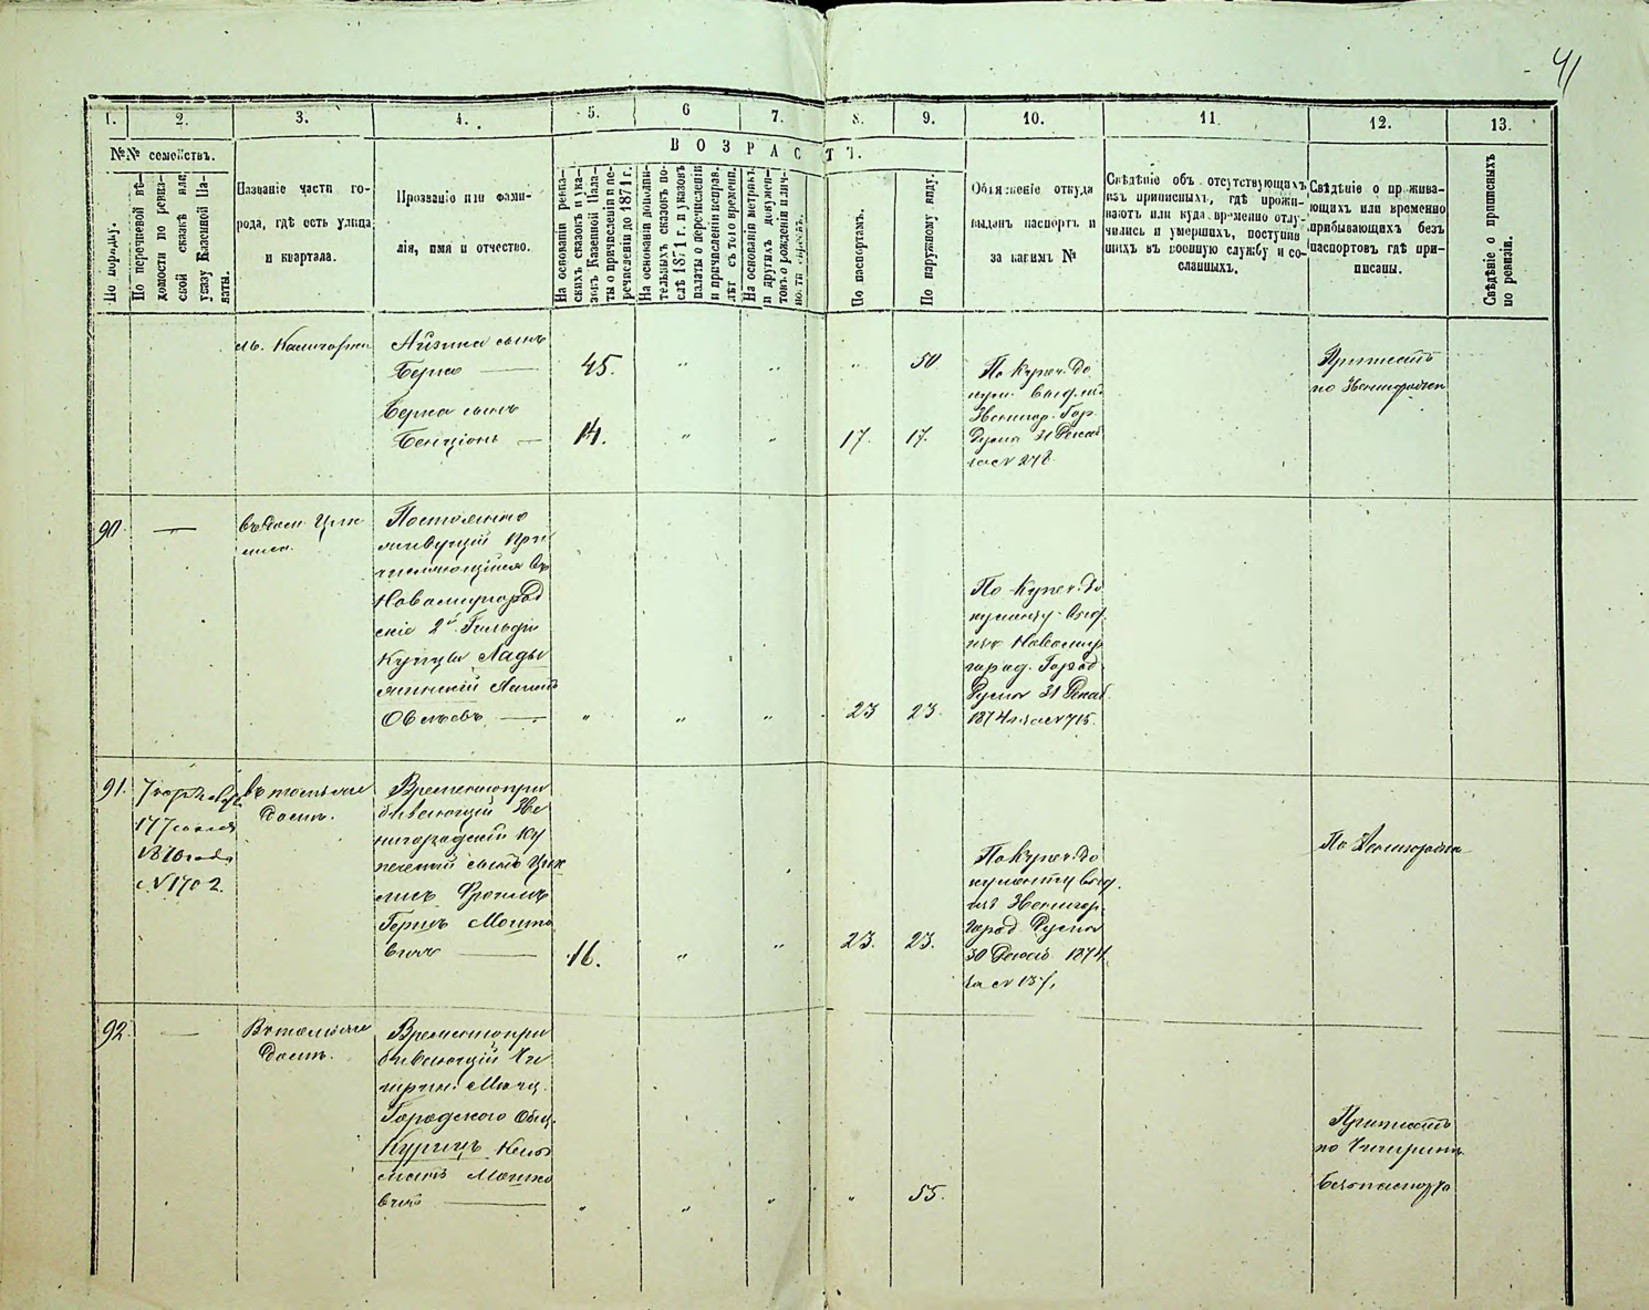 41
1. 2. 3. 4. 5. 6 7. 8. 9. 10. 11. 12. 13.
№№ семействъ.
ВОЗРАСТЪ.
По порядку.
По перечневой вѣ-
домости по ревиз-
ской сказкѣ или
указу Казенной Па-
латы.
Названіе части го-
рода, гдѣ есть улица
и квартала.
Прозваніе или фами-
лія, имя и отчество.
На основаніи ревиз-
скихъ сказокъ и ука-
зовъ Казенной Пала-
ты о причисленіи и пе-
речисленіи до 1871 г.
На основаніи дополни-
тельныхъ сказокъ по-
слѣ 1871 г. и указовъ
палаты о перечисленіи
и причисленіи исправ.
лѣт съ того времени.
На основаніи метрик.
и другихъ докумен-
товъ о рожденіи и лич-
По паспортамъ.
По наружному виду.
Объясненіе откуда
выданъ паспортъ и
за какимъ №
Свѣдѣніе объ отсутствующихъ
изъ приписныхъ, гдѣ прожи-
ваютъ или куда временно отлу-
чились и умершихъ, поступив
шихъ въ военную службу и со-
сланныхъ.
Свѣдѣніе о прожива-
ющихъ или временно
прибывающихъ безъ
паспортовъ гдѣ при-
писаны.
Свѣдѣніе о приписныхъ
по ревизіи.
Айзика сынъ
Берко — 45. 50
Берка сынъ
Бенціонъ — 14. 17. 17.
По Купеч. До
кум. выд. из
Звенигор. Гор.
Думы 31 Декаб
Приписанъ
по Звенигородк
90. —
въ дом. Цик
лиса.
Постоянно
живущій при
числяющійся въ
Новомиргород
скіе 2й Гильдіи
Купцы Лады
жинскій
— 23 23.
По Купеч. До
кументу выд.
изъ Новомир
город. Город
Думы 31 Декаб.
1874 г. за № 715.
91.
1870 года
№ 1702.
въ томъ же
домѣ.
Временно при
бывающій Зве
нигородскій Ку
печескій сынъ Цик
лисъ Фроимъ
Гершъ Мошко
вичъ — 16. 23. 23.
По Купеч. До
кументу выд.
изъ Звенигор.
Город Думы
30 Декаб. 1874
По Звенигородкѣ
92. —
Въ томъ же
домѣ.
Временно при
бывающій Чи
гирин. Мѣщ.
Городского Общ.
Курицъ Кель
манъ Мошко
вичъ — 55.
Приписанъ
по Чигирину
безъ паспорта